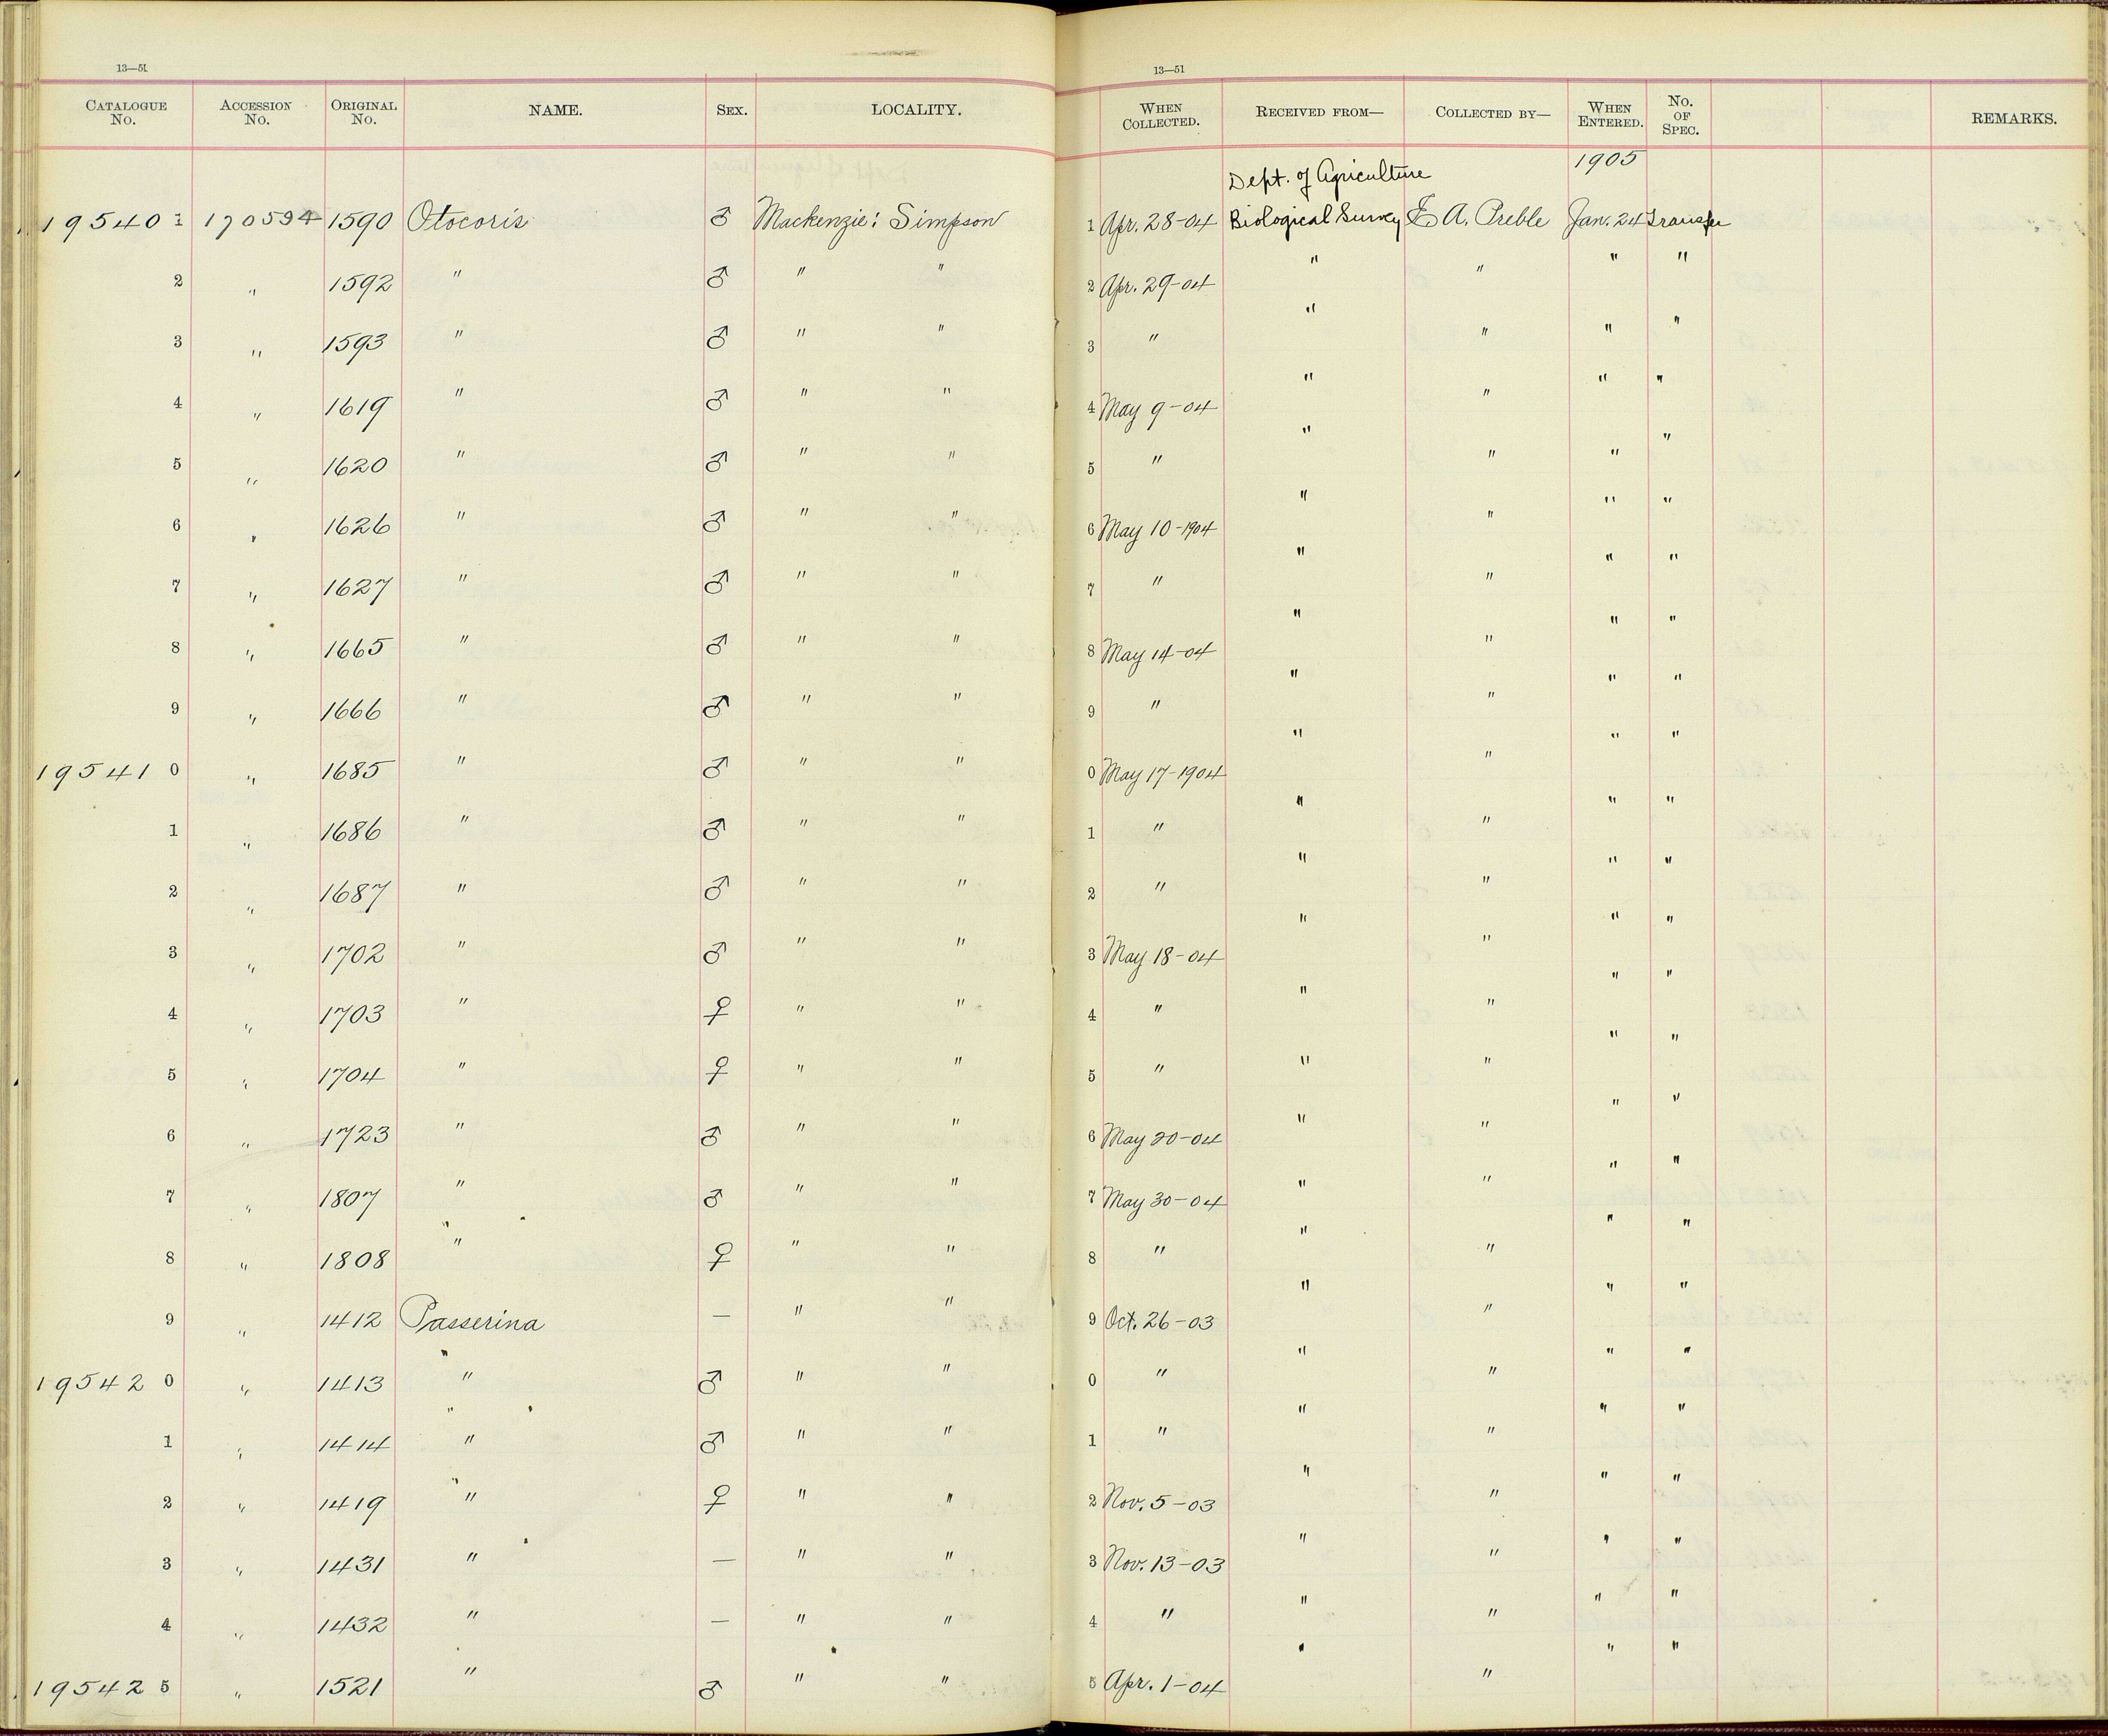 13—51
13—51
CATALOGUE No. ACCESSION No. ORIGINAL No. NAME. SEX. LOCALITY. WHEN COLLECTED. RECEIVED FROM— COLLECTED BY— WHEN ENTERED. No. OF SPEC. REMARKS.
Dept. of Agriculture 1905
19540 1 170594 1590 Otocoris ♂ Mackenzie: Simpson 1 Apr. 28-04 Biological Survey E. A. Preble Jan. 24 Transfer
2 " 1592 " ♂ " " 2 Apr. 29-04 " " " "
3 " 1593 " ♂ " " 3 " " " " "
4 " 1619 " ♂ " " 4 May 9-04 " " " "
5 " 1620 " ♂ " " 5 " " " " "
6 " 1626 " ♂ " " 6 May 10-1904 " " " "
7 " 1627 " ♂ " " 7 " " " " "
8 " 1665 " ♂ " " 8 May 14-04 " " " "
9 " 1666 " ♂ " " 9 " " " " "
19541 0 " 1685 " ♂ " " 0 May 17-1904 " " " "
1 " 1686 " ♂ " " 1 " " " " "
2 " 1687 " ♂ " " 2 " " " " "
3 " 1702 " ♂ " " 3 May 18-04 " " " "
4 " 1703 " ♀ " " 4 " " " " "
5 " 1704 " ♀ " " 5 " " " " "
6 " 1723 " ♂ " " 6 May 20-04 " " " "
7 " 1807 " ♂ " " 7 May 30-04 " " " "
8 " 1808 " ♀ " " 8 " " " " "
9 " 1412 Passerina — " " 9 Oct. 26-03 " " " "
19542 0 " 1413 " ♂ " " 0 " " " " "
1 " 1414 " ♂ " " 1 " " " " "
2 " 1419 " ♀ " " 2 Nov. 5-03 " " " "
3 " 1431 " — " " 3 Nov. 13-03 " " " "
4 " 1432 " — " " 4 " " " " "
19542 5 " 1521 " ♂ " " 5 Apr. 1-04 " " " "